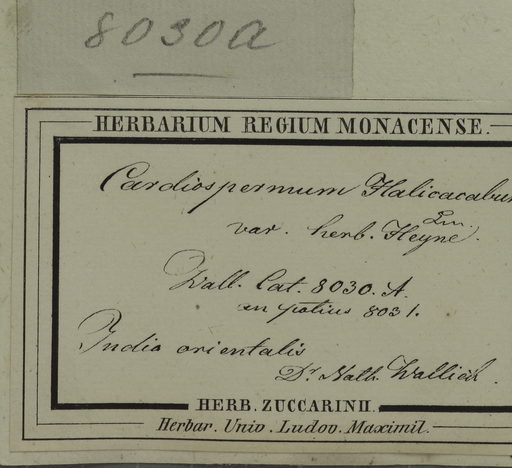 8030a
HERBARIUM REGIUM MONACENSE.
Cardiospermum Halicacabum
Lin.
var. herb. Heyne.
Wall. Cat. 8030. A.
an potius 8031.
India orientalis
Dr. Nath. Wallich.
HERB. ZUCCARINII.
Herbar. Univ. Ludov. Maximil.